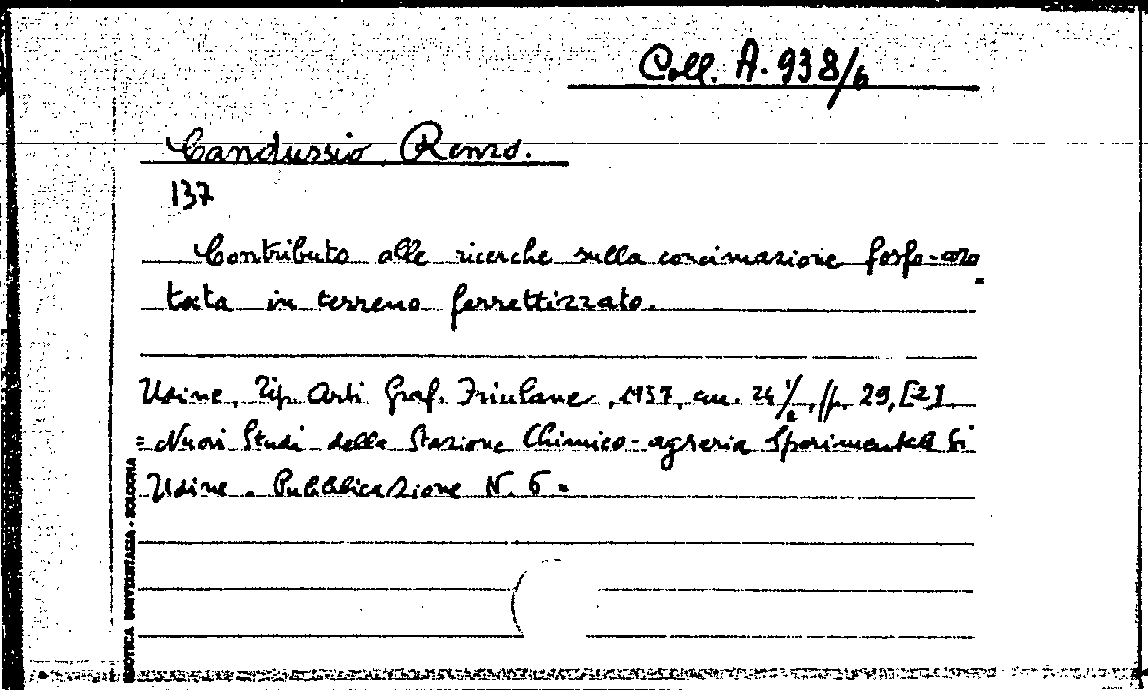 Coll. A. 938/6
Candussio, Renzo.
137
Contributo alle ricerche sulla concimazione fosfo-azo
tata in terreno ferrettizzato.
Udine, Tip. Arti Graf. Friulane, 1957, cm. 24 1/2, pp. 29, [2].
= Nuovi Studi della Stazione Chimico-agraria Sperimentale di
Udine. Pubblicazione N. 6 =
BIBLIOTECA UNIVERSITARIA - BOLOGNA